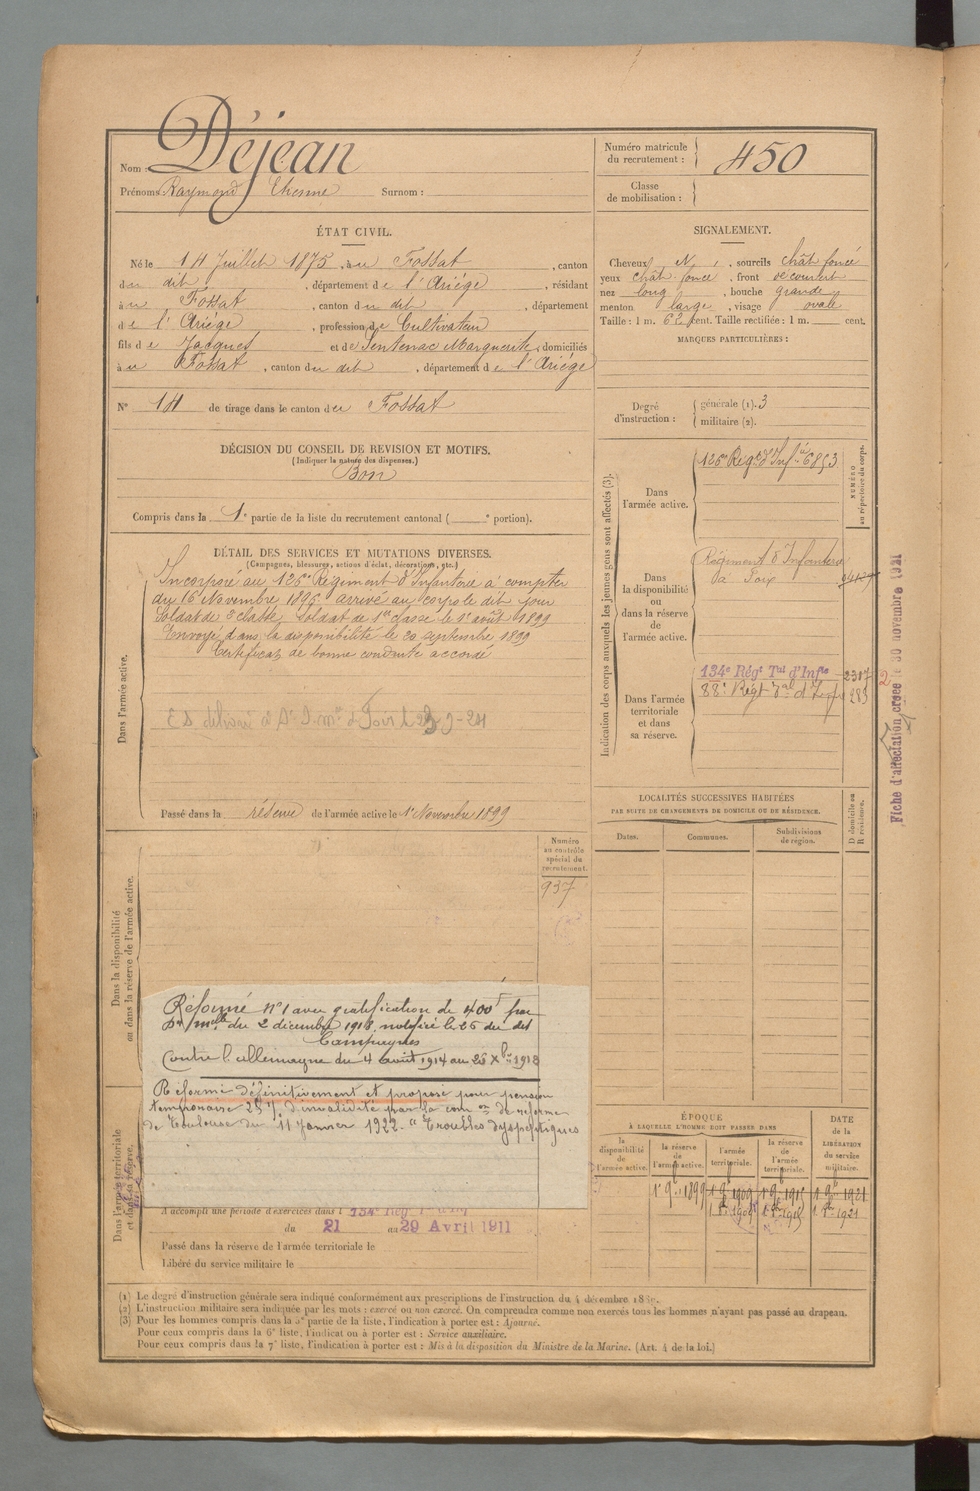 Nom : Déjean
Prénoms : Raymond Etienne Surnom :
Numéro matricule du recrutement : 450
Classe de mobilisation :
ÉTAT CIVIL.
Né le 14 Juillet 1875, à u Fossat, canton
du dit, département de l'Ariège, résidant
à u Fossat, canton du dit, département
de l'Ariège, profession de Cultivateur
fils de Jacques et de Sentenac Marguerite, domiciliés
à u Fossat, canton du dit, département de l'Ariège
N° 14 de tirage dans le canton du Fossat
SIGNALEMENT.
Cheveux N, sourcils chât foncé
yeux chât foncé, front découvert
nez long, bouche grande
menton large, visage ovale
Taille : 1 m. 62 cent. Taille rectifiée : 1 m. cent.
MARQUES PARTICULIÈRES :
Degré d'instruction : générale (1). 3
militaire (2).
DÉCISION DU CONSEIL DE REVISION ET MOTIFS.
(Indiquer la nature des dispenses.)
Bon
Compris dans la 1e partie de la liste du recrutement cantonal ( e portion).
DÉTAIL DES SERVICES ET MUTATIONS DIVERSES.
(Campagnes, blessures, actions d'éclat, décorations, etc.)
Dans l'armée active.
Incorporé au 126e Régiment d'Infanterie à compter
du 16 Novembre 1896 arrivé au corps le dit jour
Soldat de 2e classe, Soldat de 1ère classe le 1er août 1899
Envoyé dans la disponibilité le 20 septembre 1899
Certificat de bonne conduite accordé
Passé dans la réserve de l'armée active le 1er Novembre 1899
Indication des corps auxquels les jeunes gens sont affectés (3).
NUMÉRO au répertoire du corps.
Dans l'armée active.
126e Régt d'Infie 6853
Dans la disponibilité ou dans la réserve de l'armée active.
Régiment d'Infanterie
à Foix
Dans l'armée territoriale et dans sa réserve.
134e Régt Tal d'Infie 2317
88e Régt Tal d'Infie 283
Fiche d'affectation créée le 30 novembre 1921
LOCALITÉS SUCCESSIVES HABITÉES
PAR SUITE DE CHANGEMENTS DE DOMICILE OU DE RÉSIDENCE.
Dates.
Communes.
Subdivisions de région.
D domicile ou R résidence.
Dans la disponibilité ou dans la réserve de l'armée active.
Numéro au contrôle spécial du recrutement.
937
Réformé n°1 avec gratification de 400f par
Don mlle du 2 décembre 1918, notifié le 26 du dit
Campagnes
Contre l'Allemagne du 4 août 1914 au 25 Xbre 1918
Réformé définitivement et proposé pour pension
temporaire 25% d'invalidité par la comon de réforme
de Toulouse du 11 Janvier 1922. "Troubles dyspeptiques
Dans l'armée territoriale et dans sa réserve.
A accompli une période d'exercices dans l 134e Régt Tal d'Inf
du 21 au 29 Avril 1911
Passé dans la réserve de l'armée territoriale le
Libéré du service militaire le
ÉPOQUE
À LAQUELLE L'HOMME DOIT PASSER DANS
la disponibilité de l'armée active.
la réserve de l'armée active.
l'armée territoriale.
la réserve de l'armée territoriale.
DATE de la LIBÉRATION du service militaire.
1er 9bre 1899
1er 9bre 1909
1er 9bre 1915
1er 9bre 1921
(1) Le degré d'instruction générale sera indiqué conformément aux prescriptions de l'instruction du 4 décembre
(2) L'instruction militaire sera indiquée par les mots : exercé ou non exercé. On comprendra comme non exercés tous les hommes n'ayant pas passé au drapeau.
(3) Pour les hommes compris dans la 5e partie de la liste, l'indication à porter est : Ajourné.
Pour ceux compris dans la 6e liste, l'indication à porter est : Service auxiliaire.
Pour ceux compris dans la 7e liste, l'indication à porter est : Mis à la disposition du Ministre de la Marine. (Art. 4 de la loi.)